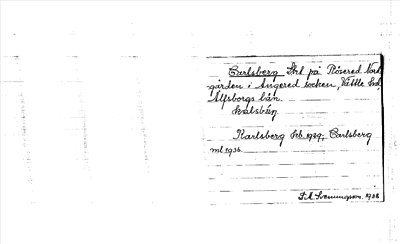 Carlsberg Sht på Rösered Nord
gården i Angered socken, Vättle hd,
Älfsborgs län.
Karlsberg Feb. 1929, Carlsberg
ml 1936.
S. A. Svenungsson. 1938